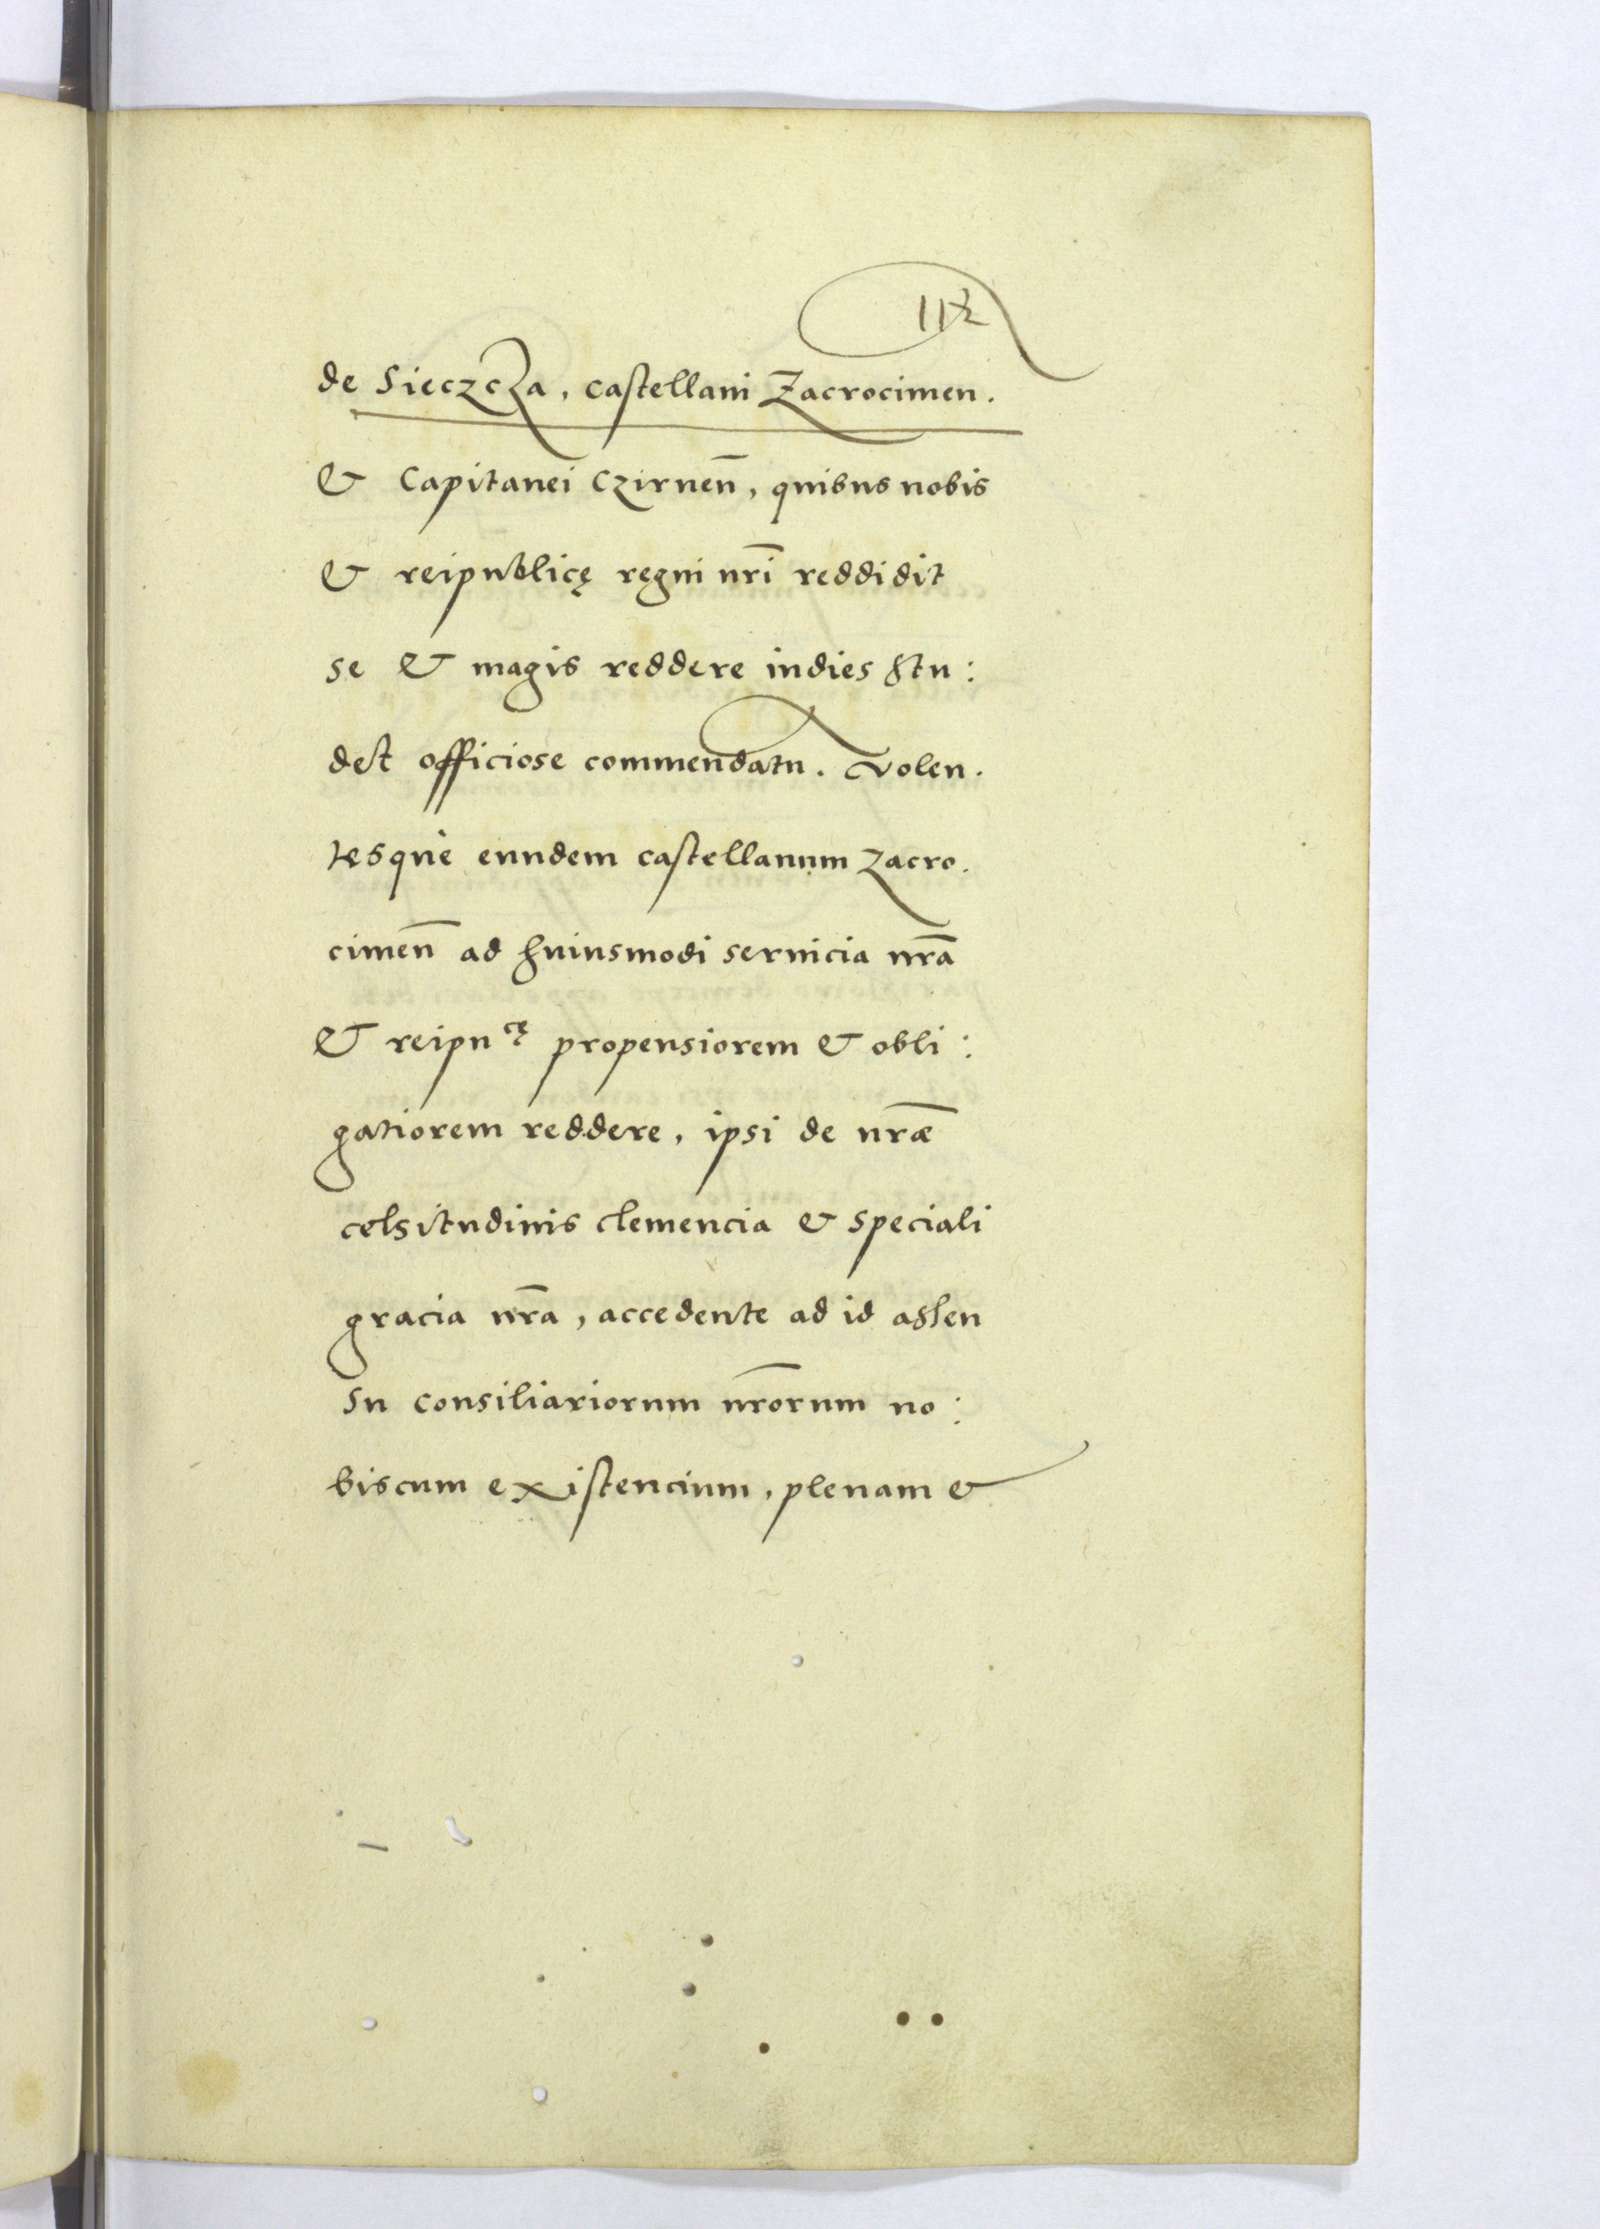 112
de Sieczcza, castellani Zacrocimen.
& Capitanei Czirnen̄, quibus nobis
& reipublicę regni nr̄i reddidit
se & magis reddere indies stu:
det officiose commendatu. Volen.
tesque eundem castellanum Zacro.
cimen̄ ad huiusmodi seruicia nr̄a
& reipu^cę propensiorem & obli:
gatiorem reddere, ipsi de nr̄æ
celsitudinis clemencia & speciali
gracia nr̄a, accedente ad id assen
su consiliariorum nr̄orum no:
biscum existencium, plenam &